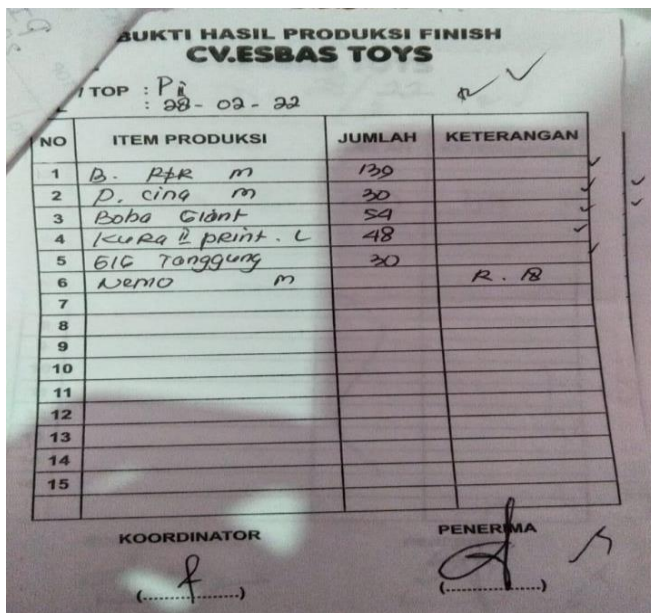 BUKTI HASIL PRODUKSI FINISH
CV.ESBAS TOYS
/ TOP : Pi
: 28-02-22
NO ITEM PRODUKSI JUMLAH KETERANGAN
1 B. M 139
2 P. cina M 30
3 Boba Giant 54
4 Kura print. L 48
5 Tanggung 30
6 Nemo M R. 18
7
8
9
10
11
12
13
14
15
KOORDINATOR PENERIMA
(....................) (....................)